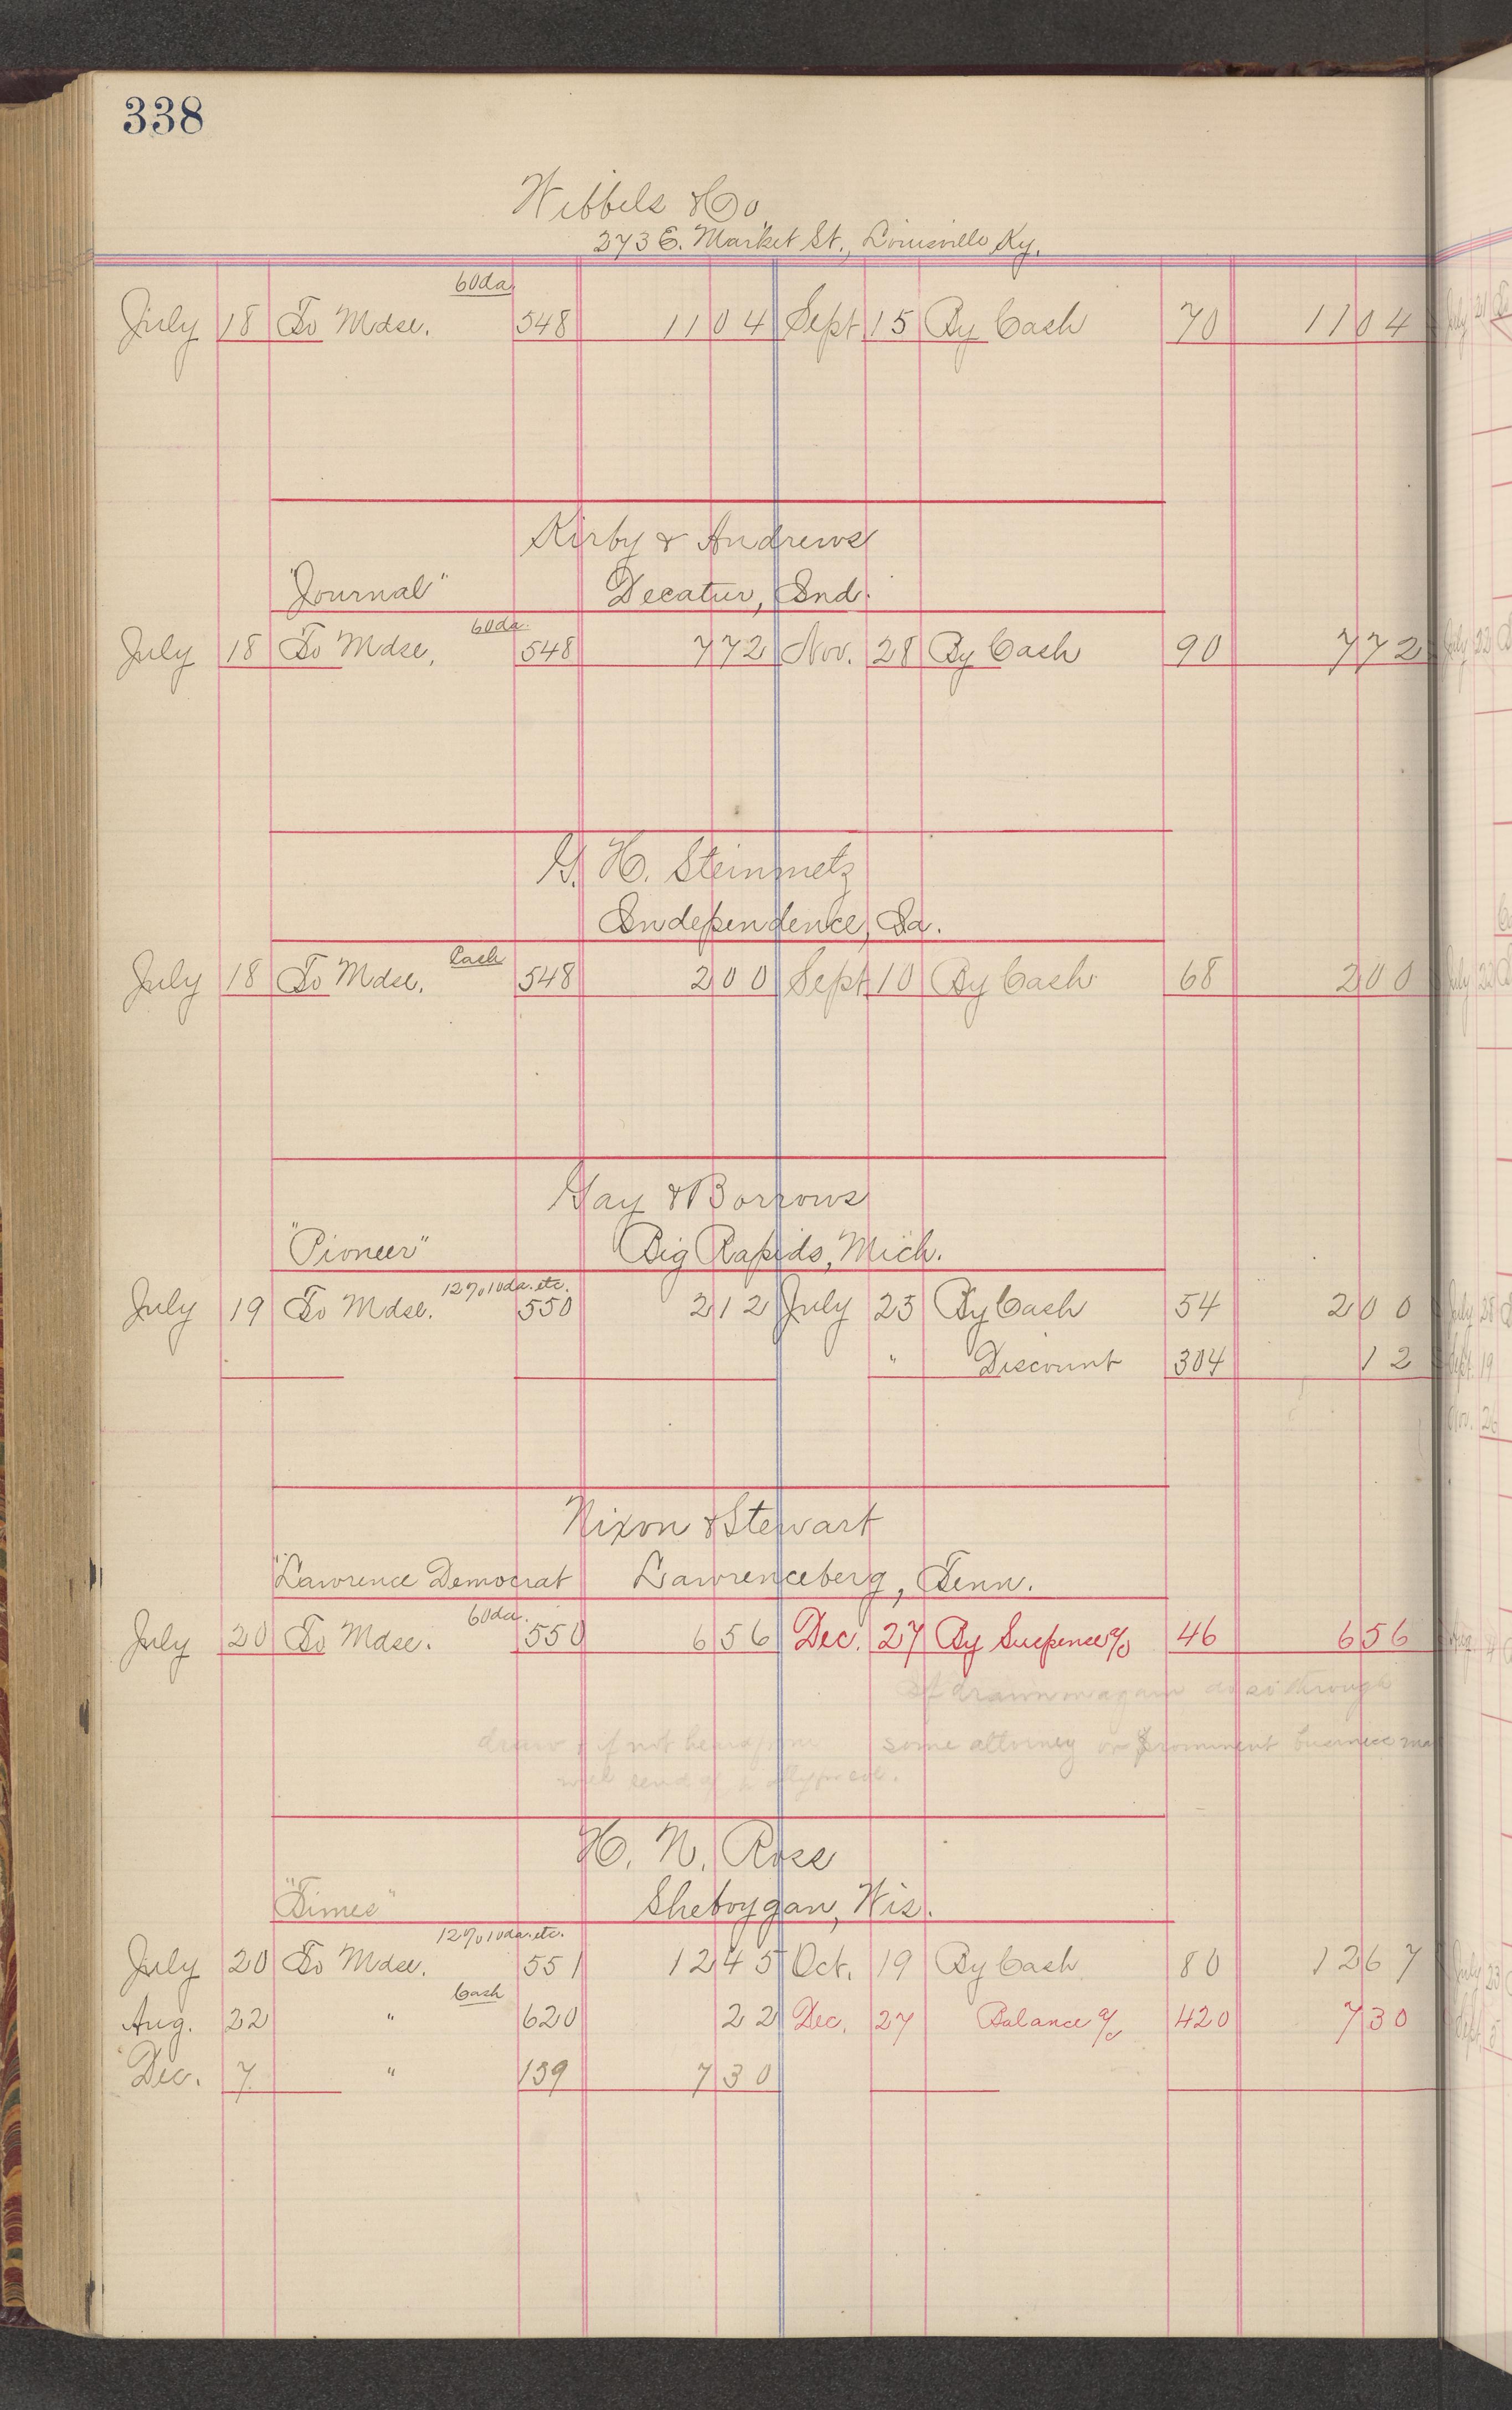 338
Wibbels & Co.
273 E. Market St., Louisville Ky.
60 da.
July 18 To Mdse. 548 11 04 Sept 15 By Cash 70 11 04
Kirby & Andrews
"Journal" Decatur, Ind.
60 da.
July 18 To Mdse. 548 7 72 Nov. 28 By Cash 90 7 72
G. H. Steinmetz
Independence, Ia.
Cash
July 18 To Mdse. 548 2 00 Sept 10 By Cash 68 2 00
Gay & Borrows
"Pioneer" Big Rapids, Mich.
12% 10 da. etc.
July 19 To Mdse. 550 2 12 July 23 By Cash 54 2 00
" Discount 304 12
Nixon & Stewart
"Lawrence Democrat Lawrenceberg, Tenn.
60 da.
July 20 To Mdse. 550 6 56 Dec. 27 By Suspense a/c 46 6 56
If drawn on again do so through
draw & if not heard from some attorney or prominent business
will send
H. N. Ross
"Times" Sheboygan, Wis.
12% 10 da. etc.
July 20 To Mdse. 551 12 45 Oct. 19 By Cash 80 12 67
Cash
Aug. 22 " 620 22 Dec. 27 Balance a/c 420 7 30
Dec. 7 " 139 7 30